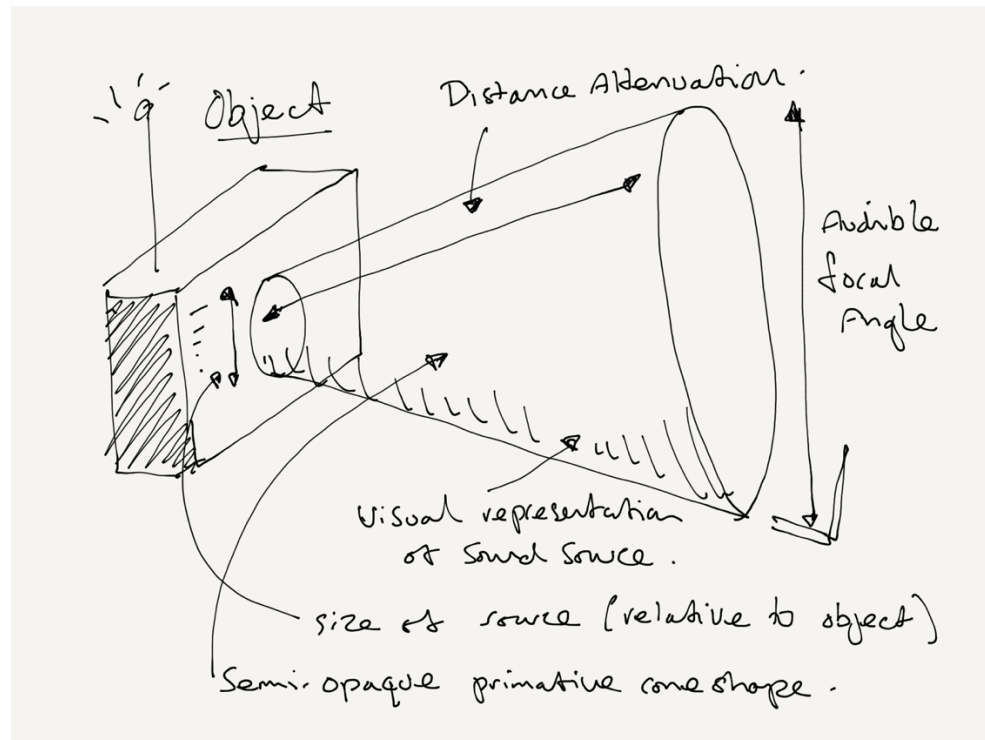 Object
Distance Attenuation.
Audible
focal
Angle
Visual representation
of Sound Source.
size of source (relative to object)
Semi-opaque primative cone shape.